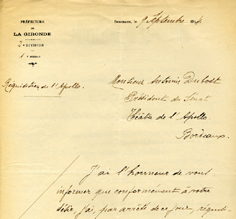 PRÉFECTURE
DE
LA GIRONDE
Bordeaux, le 9 Septembre
Réquisition de l'Apollo
Monsieur Antonin Dubost
Président du Sénat
Théâtre de l'Apollo
Bordeaux
J'ai l'honneur de vous
informer que conformément à votre
désir, j'ai, par arrêté de ce jour, réquis